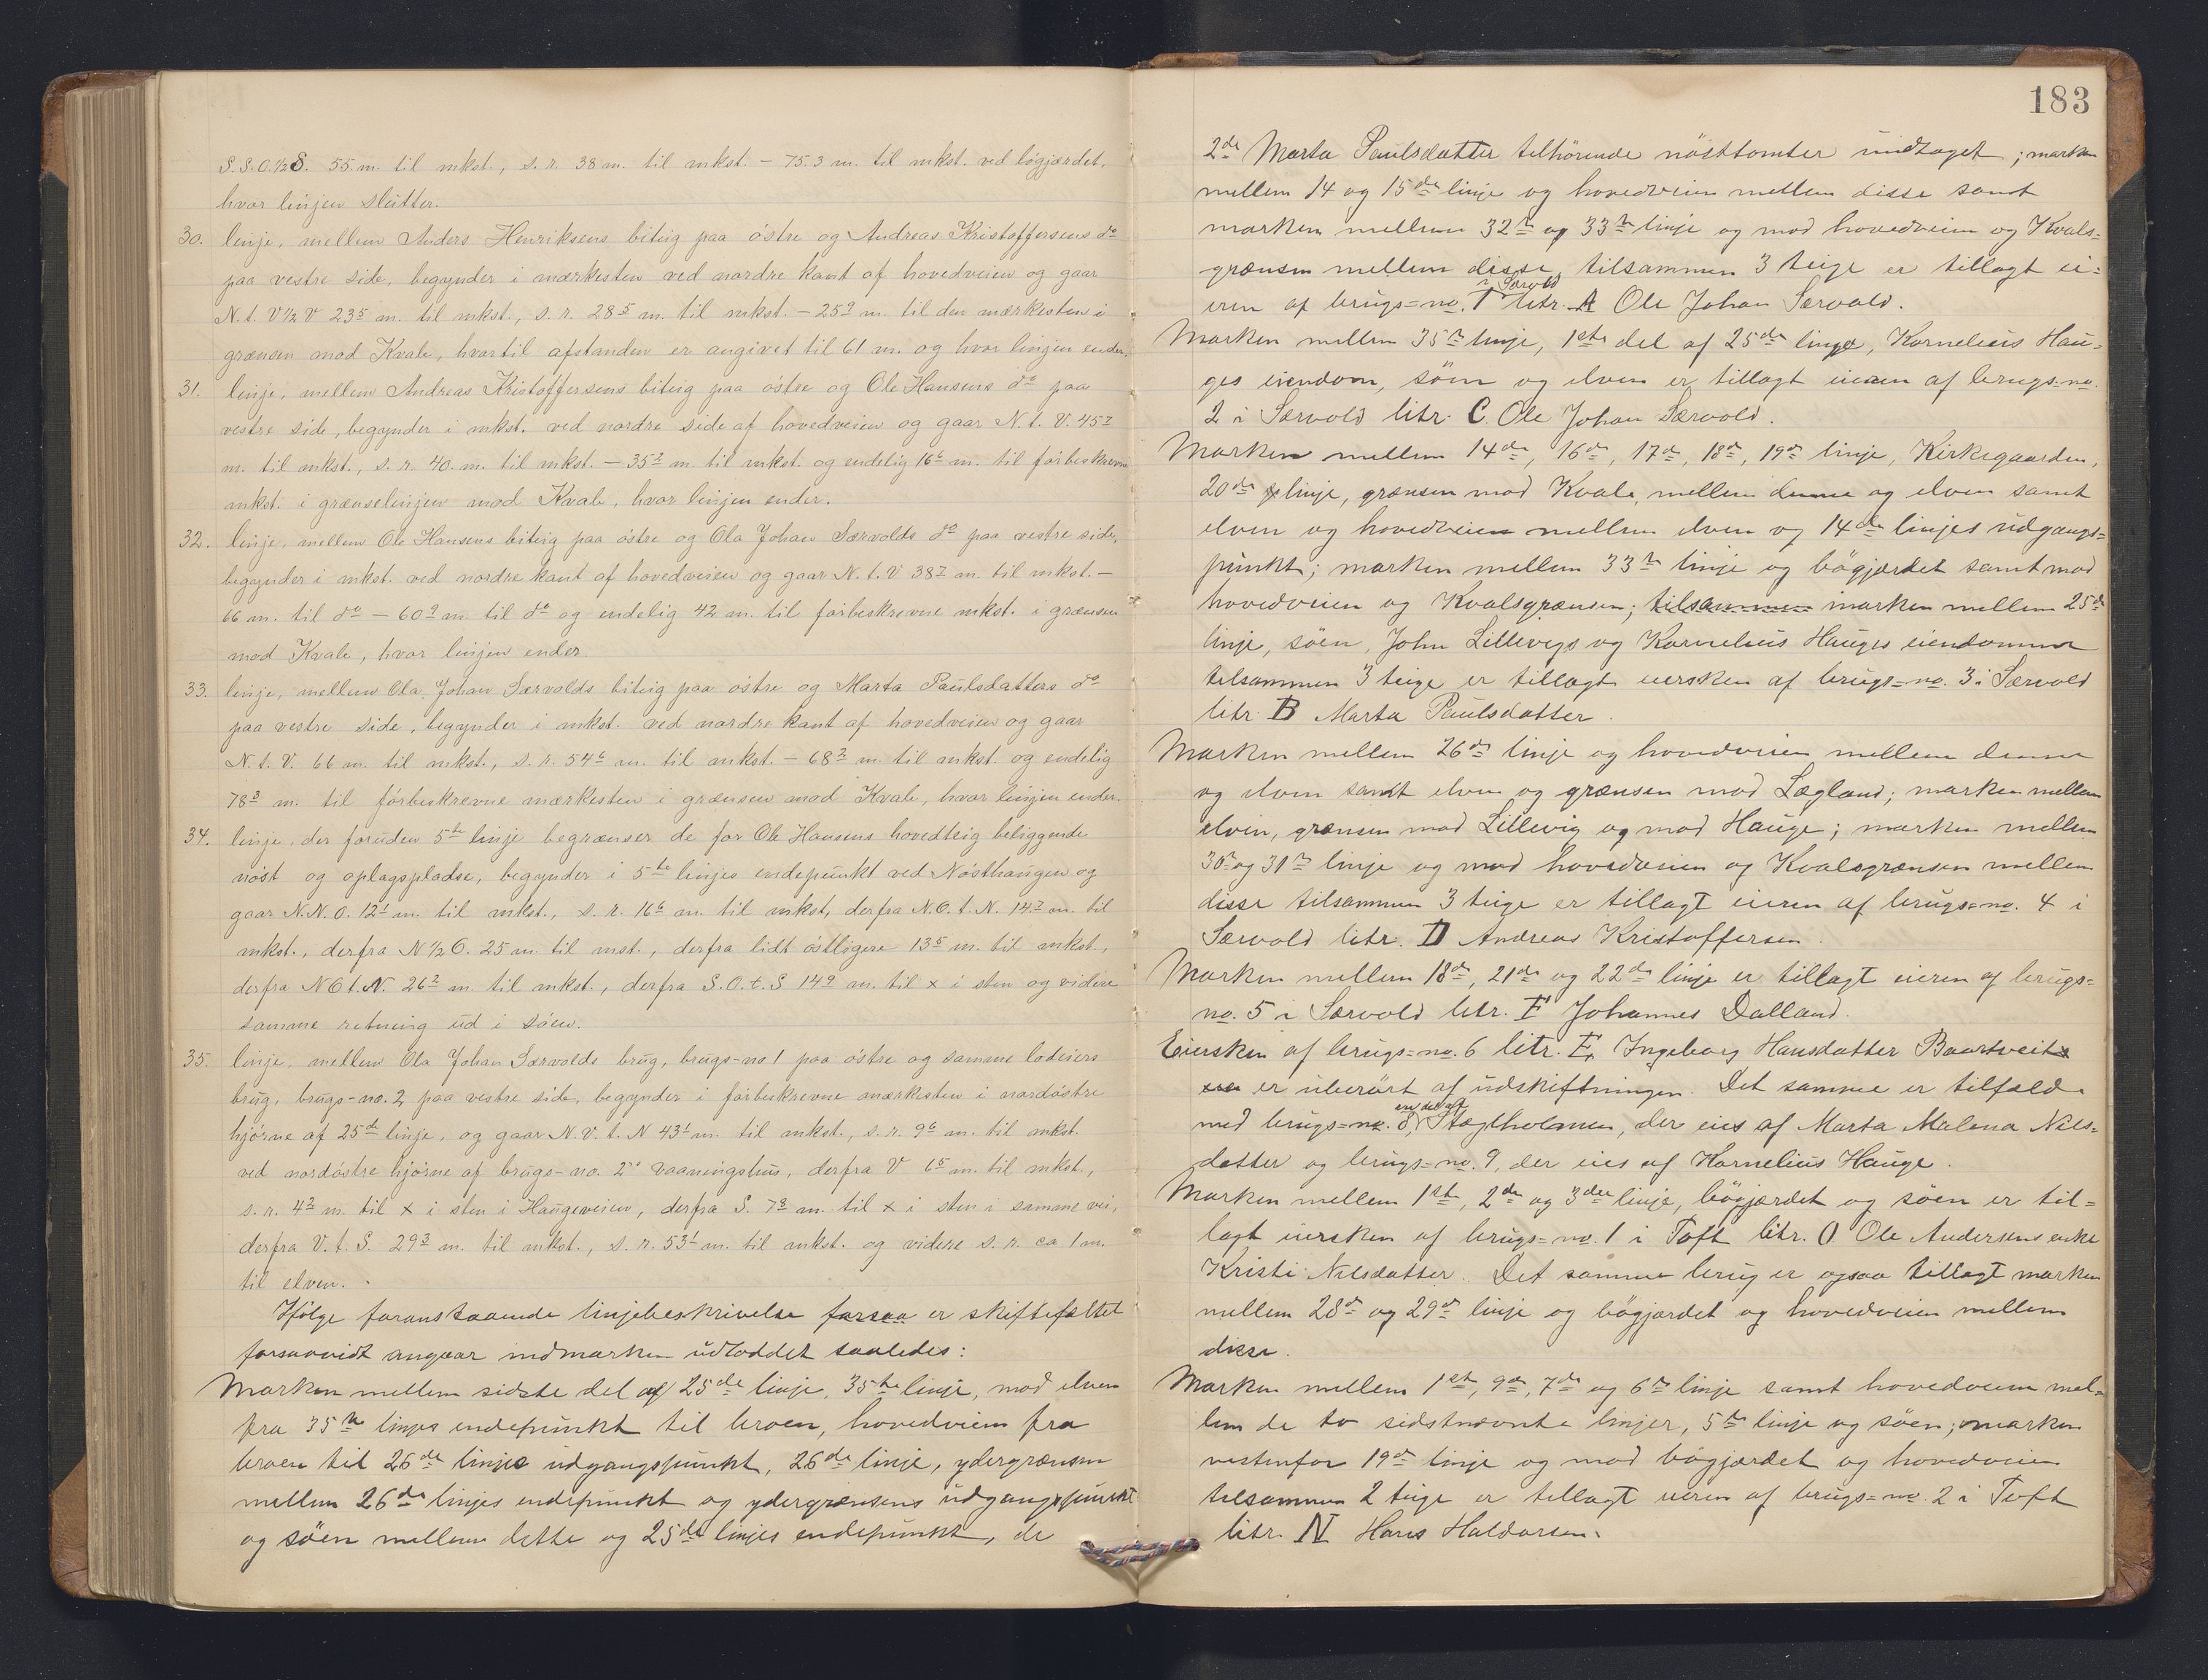 S.S.O.½S. 55 m. til mkst., s.r. 38 m. til mkst. – 75.3 m. til mkst. ved bögjærdet,
hvor linjen slutter.
30. linje, mellem Anders Henriksens biteig paa östre og Andreas Kristoffersens do
paa vestre side, begynder i mærkesten ved nordre kant af hovedveien og gaar
N.t.V½V 23⁵ m. til mkst., s.r. 28⁵ m. til mkst. – 25⁹ m. til den mærkesten i
grænsen mod Kvale, hvortil afstanden er angivet til 61 m. og hvor linjen ender.
31. linje, mellem Andreas Kristoffersens biteig paa östre og Ole Hansens do paa
vestre side, begynder i mkst. ved nordre side af hovedveien og gaar N.t.V. 45⁷
m. til mkst., s.r. 40 m. til mkst. – 35² m. til mkst. og endelig 16⁶ m. til forbeskrevne
mkst. i grænselinjen mod Kvale, hvor linjen ender.
32. linje, mellem Ole Hansens biteig paa östre og Ola Johan Særvolds do paa vestre side,
begynder i mkst. ved nordre kant af hovedveien og gaar N.t.V 38⁷ m. til mkst. –
66 m. til do – 60⁹ m. til do og endelig 42 m. til forbeskrevne mkst. i grænsen
mod Kvale, hvor linjen ender.
33. linje, mellem Ola Johan Særvolds biteig paa östre og Marta Paulsdatters do
paa vestre side, begynder i mkst. ved nordre kant af hovedveien og gaar
N.t.V. 66 m. til mkst., s.r. 54⁶ m. til mkst. – 68² m. til mkst. og endelig
78³ m. til forbeskrevne mærkesten i grænsen mod Kvale, hvor linjen ender.
34. linje, der foruden 5te linje begrænser de for Ole Hansens hovedteig beliggende
nöst og oplagspladse, begynder i 5te linjes endepunkt ved Nösthaugen og
gaar N.N.O. 12¹ m. til mkst., s.r. 16⁶ m. til mkst, derfra N.O.t.N. 14⁷ m. til
mkst., derfra N½O. 25 m. til mst., derfra lidt östligere 13⁵ m. til mkst.,
derfra NOt.N. 26² m. til mkst., derfra S.O.t.S 14⁹ m. til x i sten og videre
samme retning ud i söen.
35. linje, mellem Ola Johan Særvolds brug, brugs-no 1 paa östre og samme lodeiers
brug, brugs-no. 2 paa vestre side, begynder i forbeskrevne mærkesten i nordöstre
hjörne af 25de linje, og gaar N.V.t.N 43¹ m. til mkst., s.r. 9⁶ m. til mkst.
ved nordöstre hjörne af brugs-no. 2's vaaningshus, derfra V 6⁵ m. til mkst,
s.r. 4² m. til x i sten i Haugeveien, derfra S. 7⁸ m. til x i sten i samme vei,
derfra V.t.S. 29³ m. til mkst., s.r. 53¹ m. til mkst. og videre s.r. ca 1 m.
til elven.
Ifölge foranstaaende linjebeskrivelse forsaa er skiftefeltet
forsaavidt angaar indmarken udloddet saaledes:
Marken mellem sidste del af 25de linje, 35te linje, mod elven
fra 35te linjes endepunkt til broen, hovedveien fra
broen til 26de linjes udgangspunkt, 26de linje, ydergrænsen
mellem 26de linjes endepunkt og ydergrænsens udgangspunkt
og söen mellem dette og 25de linjes endepunkt, de
183
2de Marta Paulsdatter tilhörende nösttomter undtaget; marken
mellem 14 og 15de linje og hovedveien mellem disse samt
marken mellem 32te og 33te linje og mod hovedveien og Kvals=
grænsen mellem disse, tilsammen 3 teige er tillagt ei=
eren af brugs=no. 1 i Særvold litr. A Ole Johan Særvold.
Marken mellem 35te linje, 1ste del af 25de linje, Kornelius Hau=
ges eiendom, söen og elven er tillagt eieren af brugs=no.
2 i Særvold litr. C Ole Johan Særvold.
Marken mellem 14de, 16de, 17de, 18de, 19de linje, Kirkegaarden,
20de linje, grænsen mod Kvale mellem denne og elven samt
elven og hovedveien mellem elven og 14de linjes udgangs=
punkt; marken mellem 33te linje og bögjærdet samt mod
hovedveien og Kvalsgrænsen; tilsammen marken mellem 25de
linje, söen, John Lillevigs og Kornelius Hauges eiendomme
tilsammen 3 teige er tillagt eiersken af brugs=no. 3 i Særvold
litr. B Marta Paulsdatter.
Marken mellem 26de linje og hovedveien mellem denne
og elven samt elven og grænsen mod Lægland; marken mellem
elven, grænsen mod Lillevig og mod Hauge; marken mellem
30te og 31te linje og mod hovedveien og Kvalsgrænsen mellem
disse tilsammen 3 teige er tillagt eieren af brugs=no. 4 i
Særvold litr. D Andreas Kristoffersen.
Marken mellem 18de, 21de og 22de linje er tillagt eieren af brugs=
no. 5 i Særvold litr. F Johannes Dalland.
Eiersken af brugs=no. 6 litr. E, Ingeborg Hansdatter Baartveit
er uberört af udskiftningen. Det samme er tilfæld
med brugs=no. 8, en del af Stæglholmen, der eies af Marta Malena Nils=
datter og brugs=no. 9, der eies af Kornelius Hauge.
Marken mellem 1ste, 2de og 3die linje, bögjærdet og söen er til=
lagt eiersken af brugs=no. 1 i Toft litr. O Ole Andersens enke
Kristi Nilsdatter. Det samme brug er ogsaa tillagt marken
mellem 28de og 29de linje og bögjærdet og hovedveien mellem
disse.
Marken mellem 1ste, 9de, 7de og 6te linje samt hovedveien mel=
lem de to sidstnævnte linjer, 5te linje og söen; marken
vestenfor 19de linje og mod bögjærdet og hovedveien
tilsammen 2 teige er tillagt eieren af brugs=no. 2 i Toft
litr. N Hans Haldorsen.